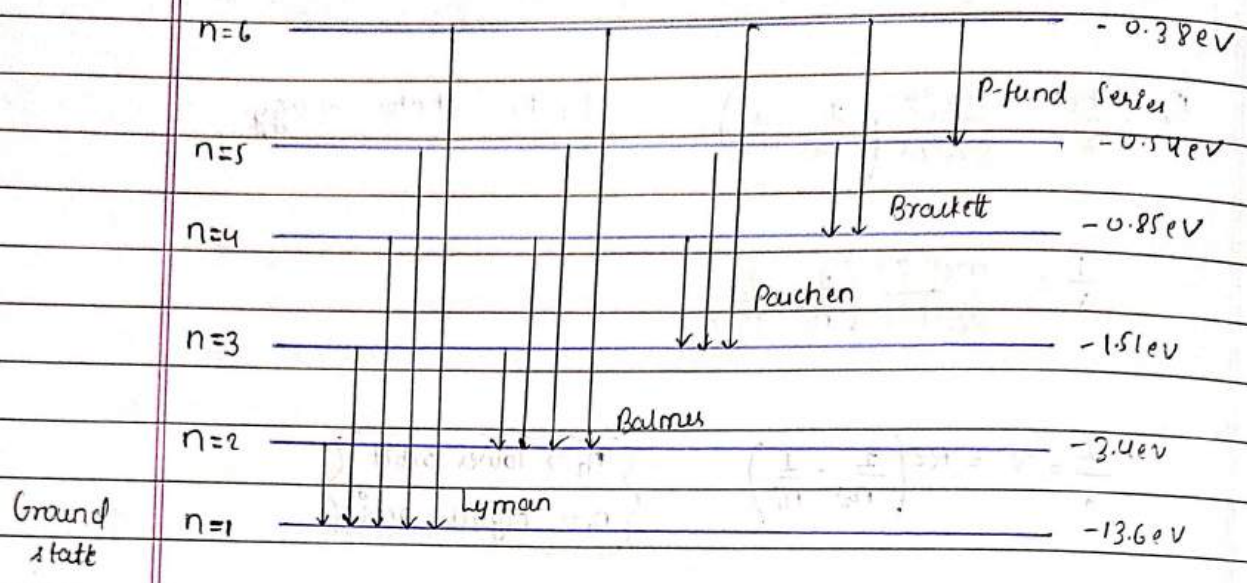 n=6 - 0.38eV
P-fund Series
n=5 -0.54eV
Brackett
n=4 -0.85eV
Paschen
n=3 -1.51eV
Balmer
n=2 -3.4eV
Lyman
Ground n=1 -13.6eV
state